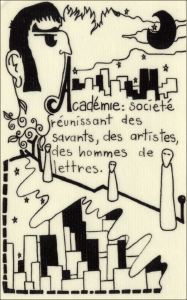 Académie: société
réunissant des
savants, des artistes,
des hommes de
lettres.